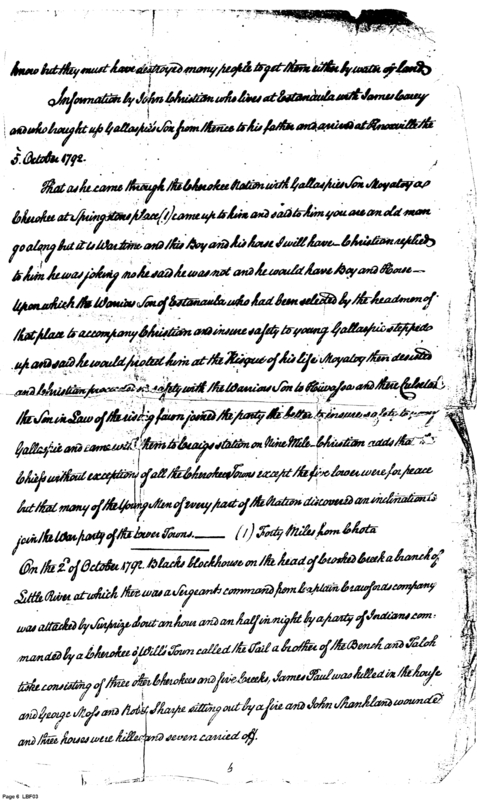 know but they must have destroyed many people to get them either by water or land
Information by John Christian who lives at Estanaula with James Carey
and who brought up Gallaspie's Son from thence to his father and arrived at Knoxville the
5 October 1792.
That as he came through the Cherokee Nation with Gallaspies Son Moyatoy a
Cherokee at Springstons place (1) came up to him and said to him you are an old man
go along but it is War time and this Boy and his horse I will have — Christian replied
to him he was joking no he said he was not and he would have Boy and Horse —
Upon which the Warriors Son of Estanaula who had been selected by the headmen of
that place to accompany Christian and insure safety to young Gallaspie stepped
up and said he would protect him at the Risque of his life Moyatoy then desisted
and Christian proceeded in safety with the Warriors Son to Hiwassa and there
the Son in Law of the rising fawn joined the party the better to insure safety to young
Gallaspie and came with them to Craigs station on Nine Mile Christian adds the
Chiefs without exceptions of all the Cherokee Towns except the five lower were for peace
but that many of the Young Men of every part of the Nation discovered an inclination to
join the War party of the lower Towns. — (1) Forty Miles from Chota
On the 2d of October 1792. Blacks blockhouse on the head of Crooked Creek a branch of
Little River at which there was a Sergeants command from Captain Crawfords company
was attacked by Surprize about an hour and an half in night by a party of Indians com-
manded by a Cherokee of Will's Town called the Tail a brother of the Bench and Taloh
tiske consisting of three other Cherokees and five Creeks, James Paul was killed in the house
and George Moss and Robt Sharpe sitting out by a fire and John Shankland wounded
and three horses were killed and seven carried off.
Page 6 LBF03